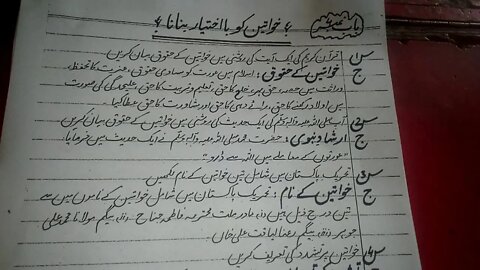 خواتین کو بااختیار بنانا
س قرآن کریم کی ایک آیت کی روشنی میں خواتین کے حقوق بیان کریں
ج خواتین کے حقوق: اسلام میں عورت کو مساوی حقوق، عزت کا تحفظ،
وراثت میں حصہ، حق مہر، خلع کا حق، تعلیم و تربیت کا حق، علیحدگی کی صورت
میں اولاد رکھنے کا حق، رائے دہی کا حق اور مشاورت کا حق عطا کیا
س آپ صلی اللہ علیہ وآلہ وسلم کی ایک حدیث کی روشنی میں خواتین کے حقوق بیان کریں
ج ارشاد نبوی: حضرت محمد صلی اللہ علیہ وآلہ وسلم نے ایک حدیث میں فرمایا
"عورتوں کے معاملے میں اللہ سے ڈرو"
س تحریک پاکستان میں شامل تین خواتین کے نام لکھیں
ج خواتین کے نام: تحریک پاکستان میں شامل خواتین کے ناموں میں سے
تین درج ذیل ہیں مادر ملت محترمہ فاطمہ جناح بیگم مولانا محمد علی
جوہر بیگم رعنا لیاقت علی خان
س خواتین پر تشدد کی تعریف کریں